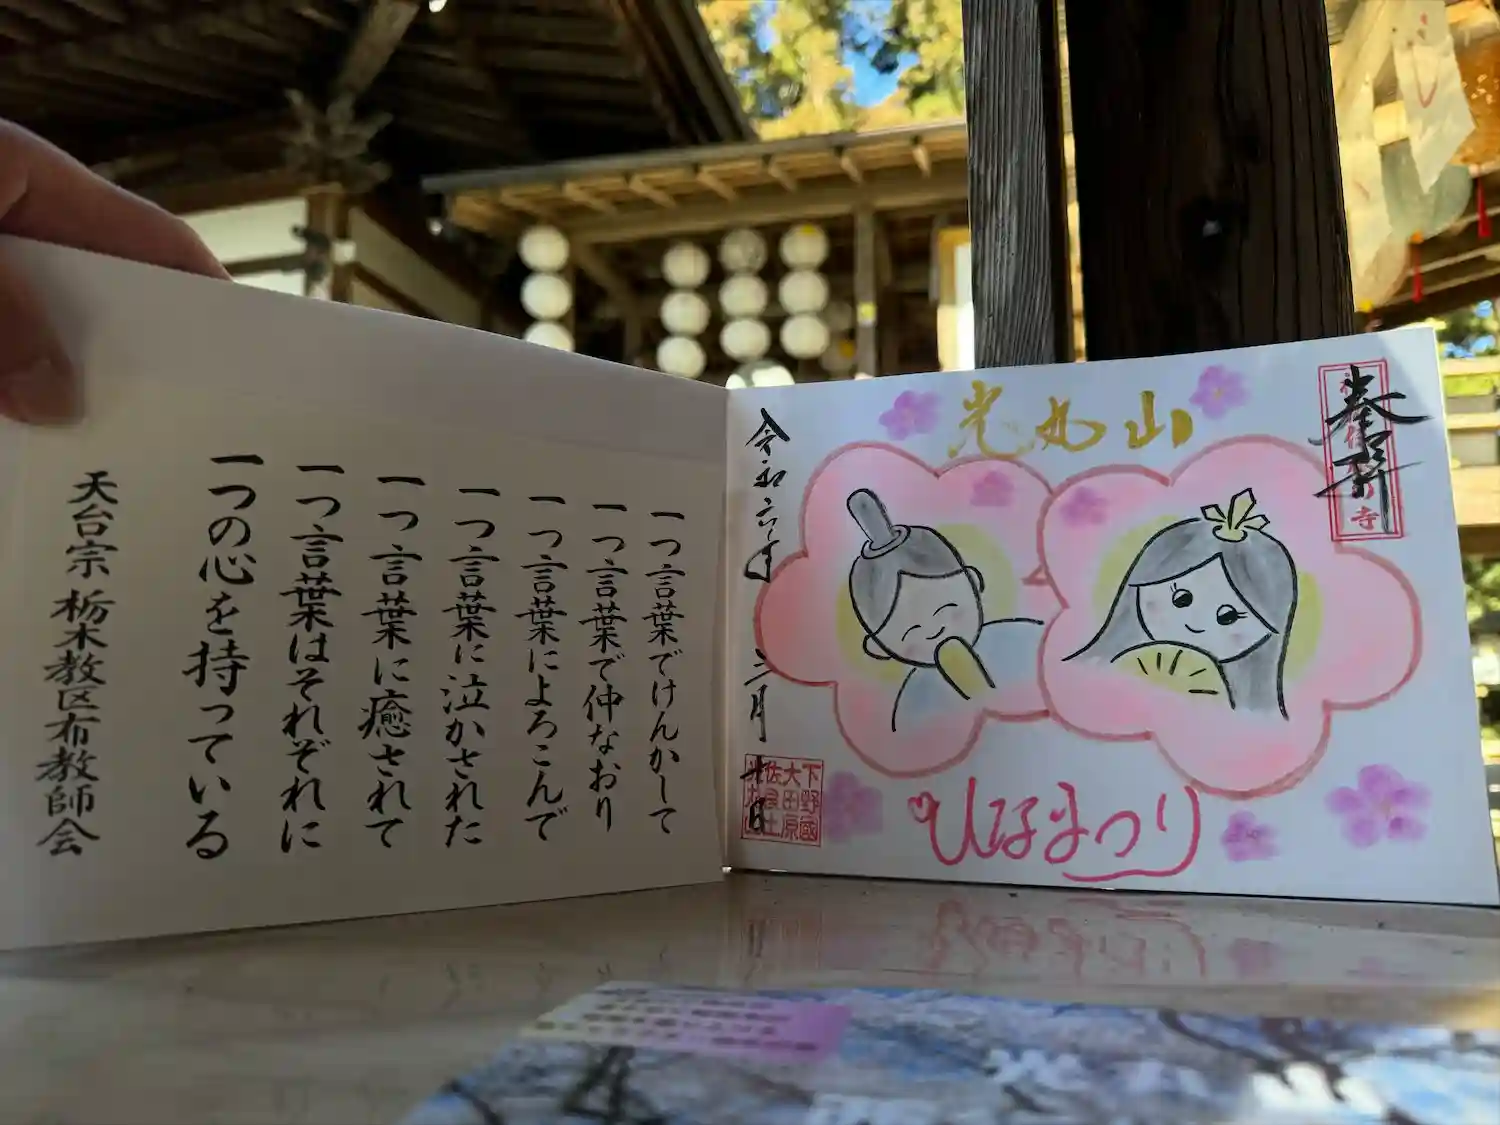 一つ言葉でけんかして
一つ言葉で仲なおり
一つ言葉によろこんで
一つ言葉に泣かされた
一つ言葉に癒されて
一つ言葉はそれぞれに
一つの心を持っている
天台宗 栃木教区布教師会
奉拝
光丸山
令和六年 二月 十日
下野國
大田原
佐良土
光丸山
ひなまつり